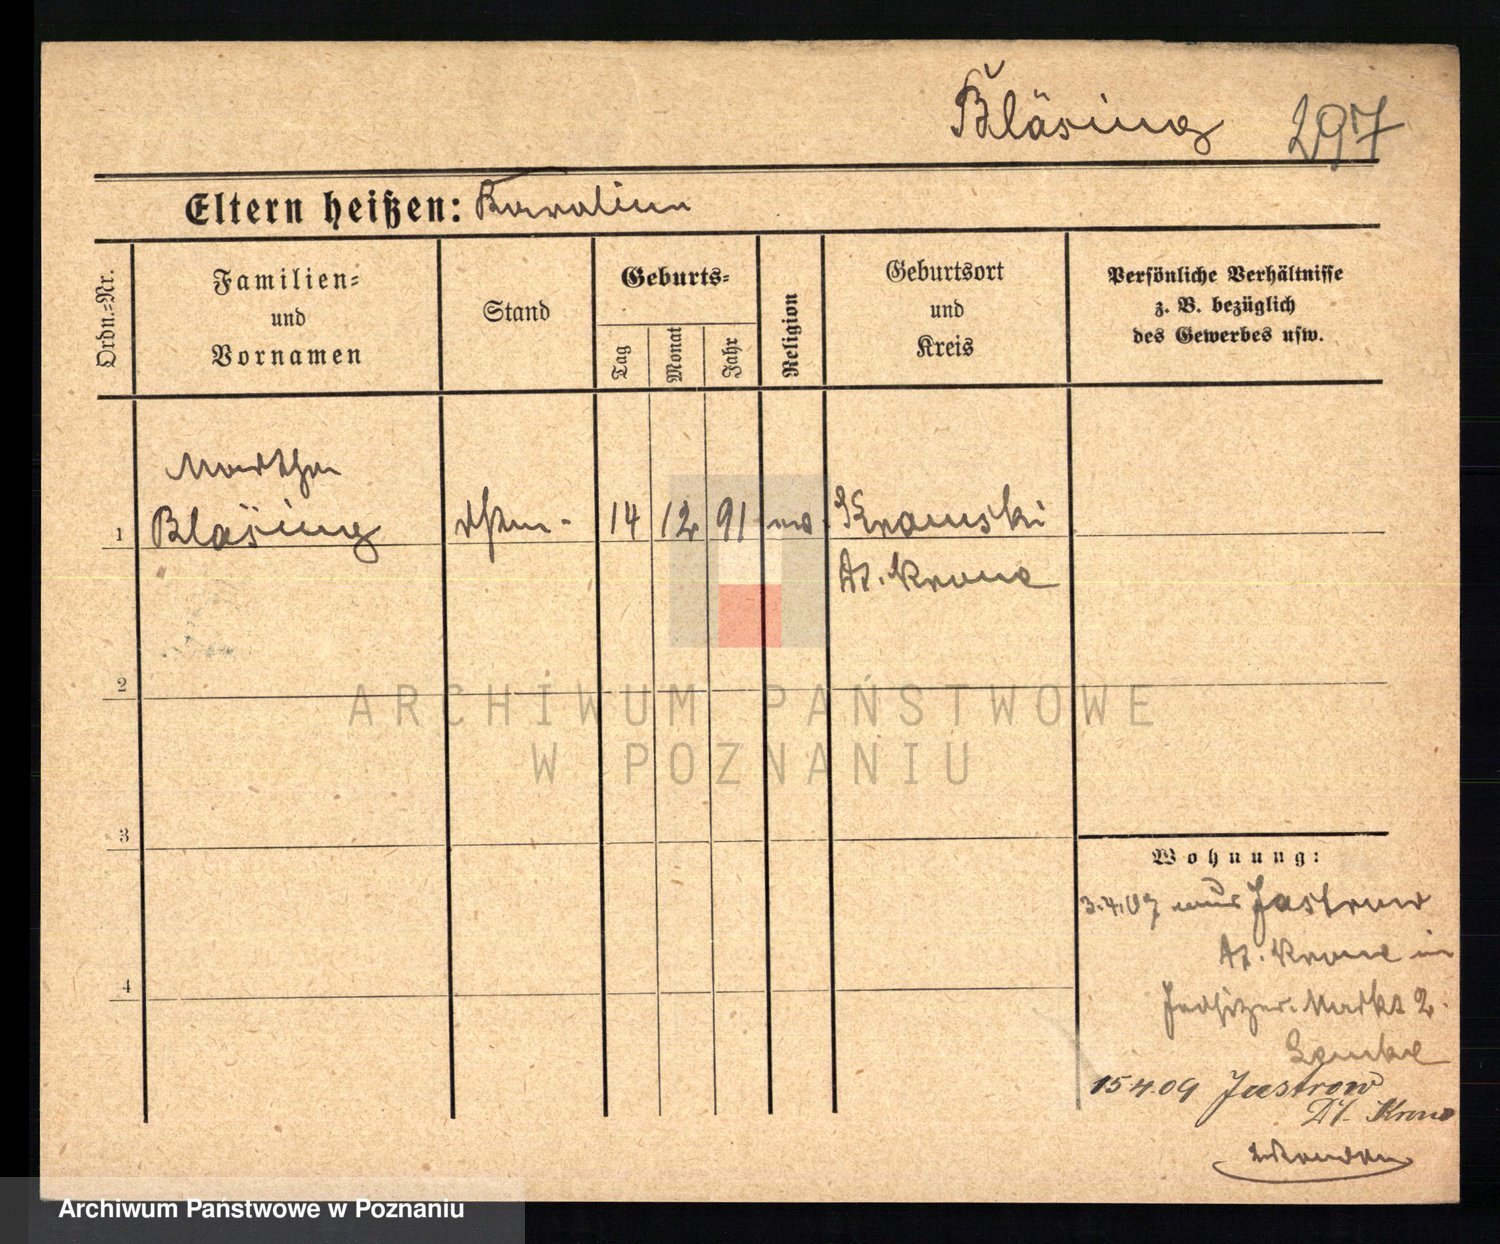 Bläsing 297
Eltern heißen: Karoline
Ordn.-Nr.
Familien-
und
Vornamen
Stand
Geburts-
Tag
Monat
Jahr
Religion
Geburtsort
und
Kreis
Persönliche Verhältnisse
z. B. bezüglich
des Gewerbes usw.
Martha
1 Bläsing 14 12 91 Kramski
Dt. Krone
2
3
4
Wohnung:
3.4.07 aus Jastrow
Dt. Krone in
Markt 2.
15.4.09 Jastrow
Dt. Krone
ARCHIWUM PAŃSTWOWE
W POZNANIU
Archiwum Państwowe w Poznaniu